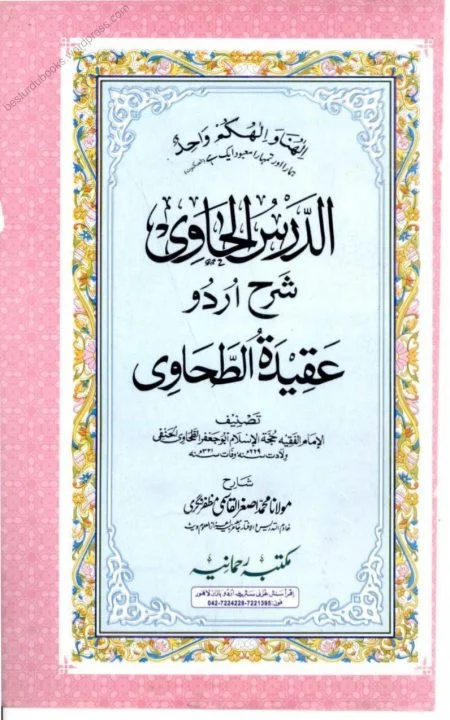 besturdubooks.wordpress.com
اِلٰهُنَا وَ اِلٰهُكُمْ وَاحِدٌ
ہمارا اور تمہارا معبود ایک ہے (العنکبوت)
الدَّرسُ الحَاوِی
شَرح اُردُو
عَقِیدَۃُ الطَّحَاوِی
تَصْنِیف
الإمام الفقیہ حُجّۃ الإسلام أبو جعفر الطحاوی الحنفی
ولادت سنہ ۲۲۹ھ وفات سنہ ۳۲۱ھ
شارح
مولانا محمد اصغر القاسمی مظفر نگری
مکتبہ رحمانیہ
اِقرأ سنٹر غزنی سٹریٹ اردو بازار لاہور
فون: 042-7224228-7221395